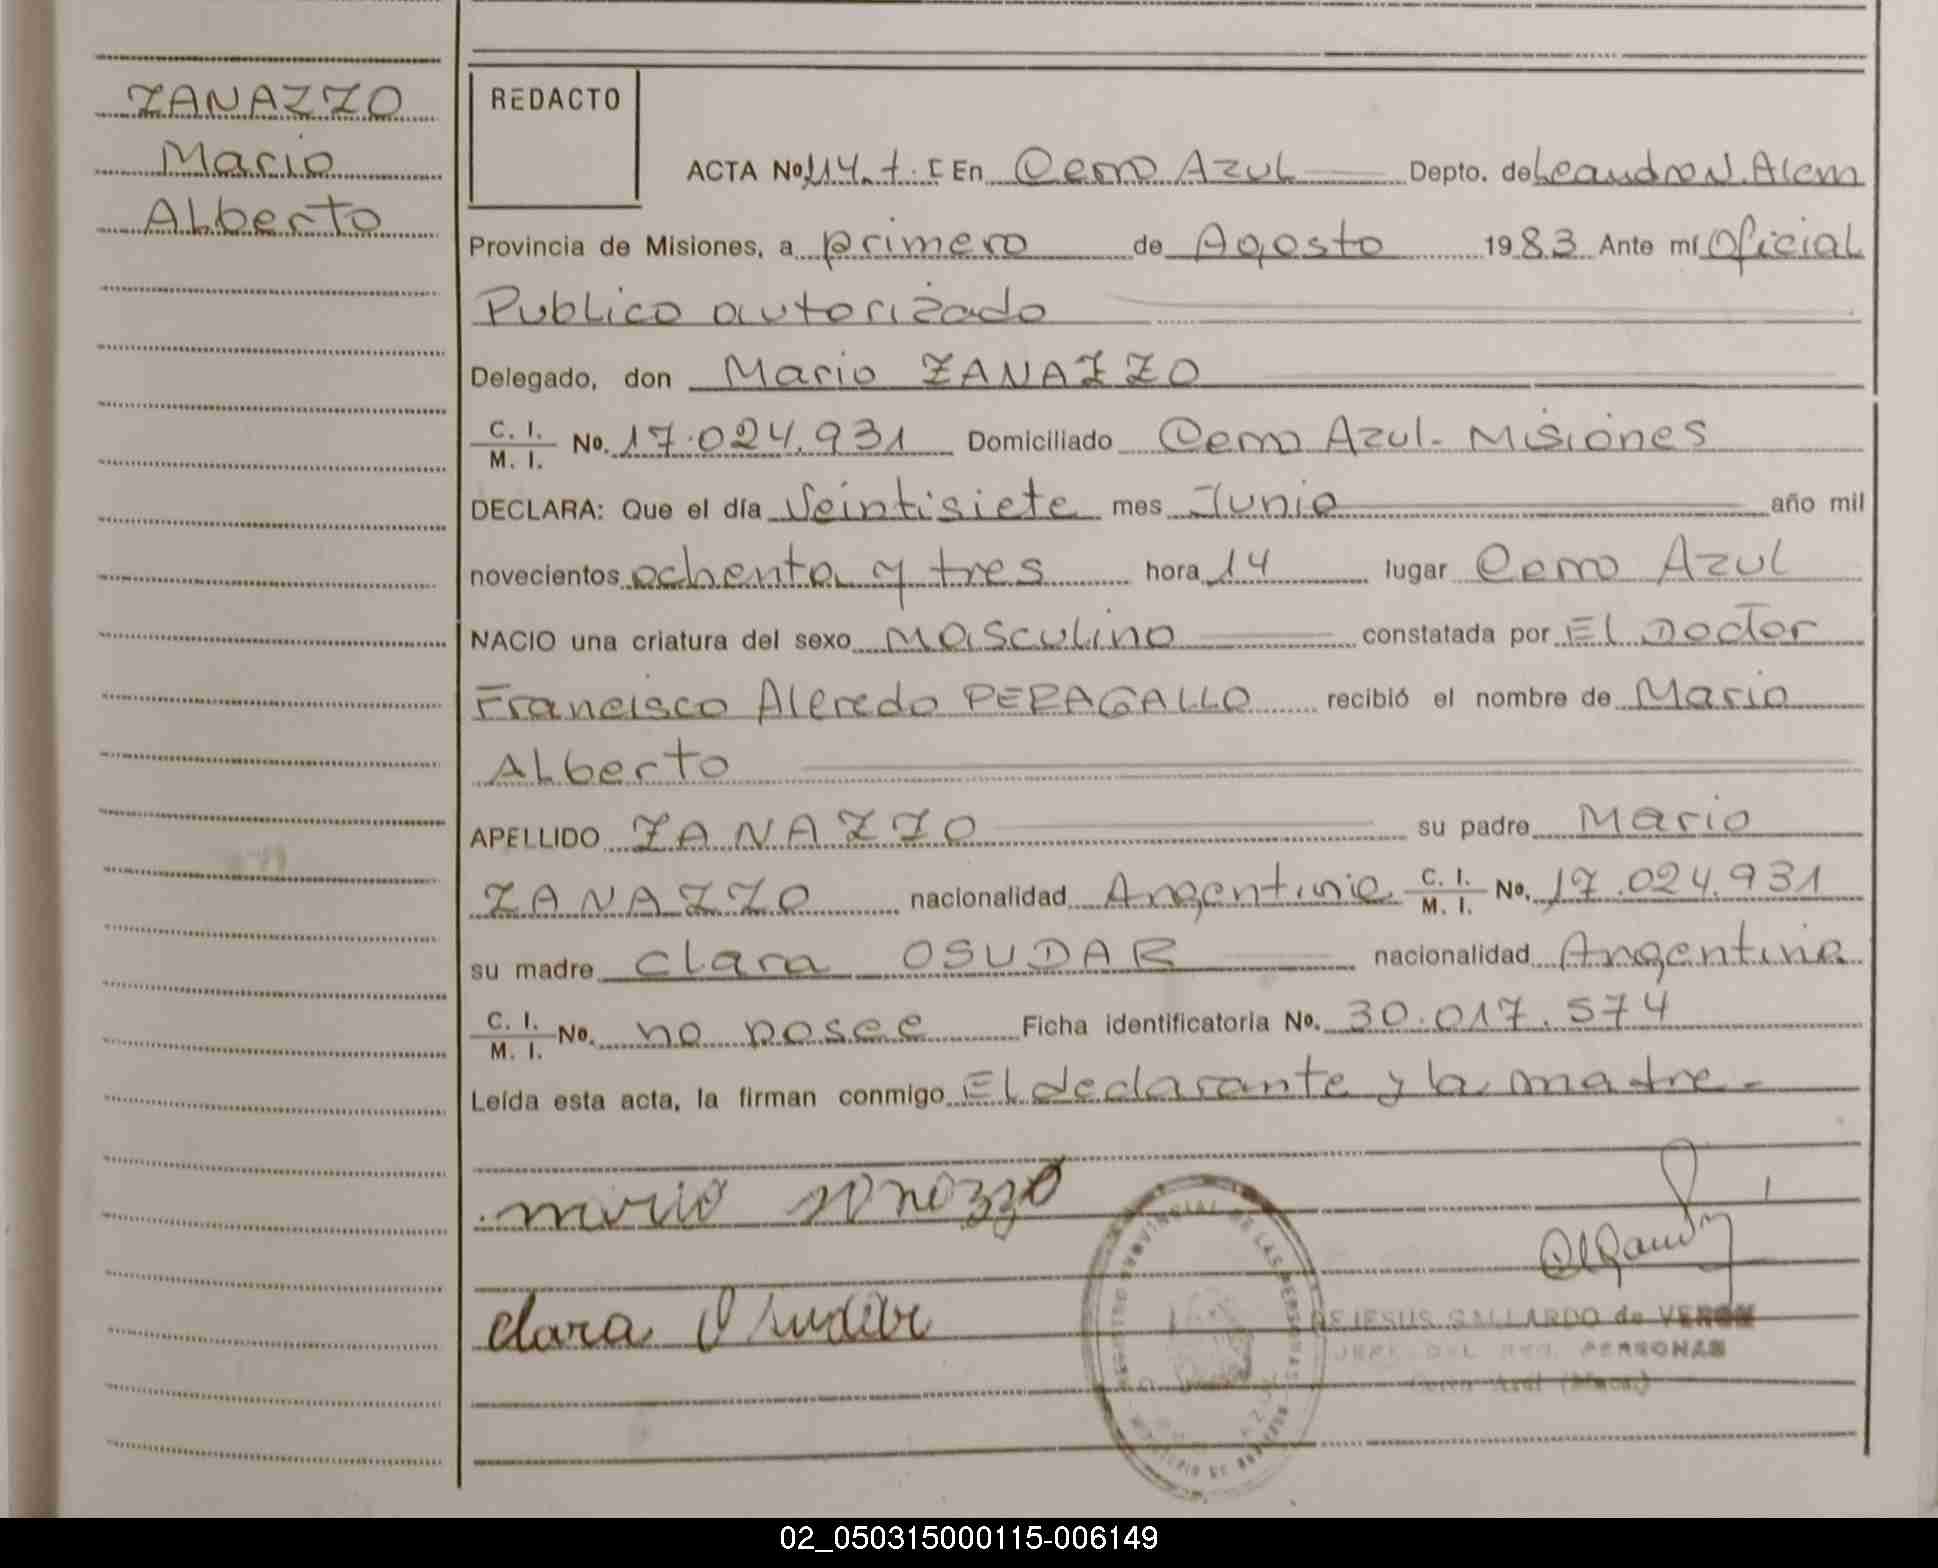 ZANAZZO
Mario
Alberto
REDACTO
ACTA No. 114. t. I En Cerro Azul Depto. de Leandro N. Alem
Provincia de Misiones, a primero de Agosto 1983 Ante mí Oficial
Publico autorizado
Delegado, don Mario ZANAZZO
C. I. M. I. No. 17.024.931 Domiciliado Cerro Azul - Misiones
DECLARA: Que el día Veintisiete mes Junio año mil
novecientos ochenta y tres hora 14 lugar Cerro Azul
NACIO una criatura del sexo Masculino constatada por El Doctor
Francisco Alfredo PERAGALLO recibió el nombre de Mario
Alberto
APELLIDO ZANAZZO su padre Mario
ZANAZZO nacionalidad Argentino C. I. M. I. No. 17.024.931
su madre Clara OSUDAR nacionalidad Argentina
C. I. M. I. No. no posee Ficha identificatoria No. 30.017.574
Leída esta acta, la firman conmigo El declarante y la madre -
mario zanazzo
clara Osudar
REGISTRO PROVINCIAL DE LAS PERSONAS
MINISTERIO DE GOBIERNO
DE JESUS GALLARDO de VERON
JEFE DEL REG. PERSONAS
Cerro Azul (Mnes.)
02_050315000115-006149